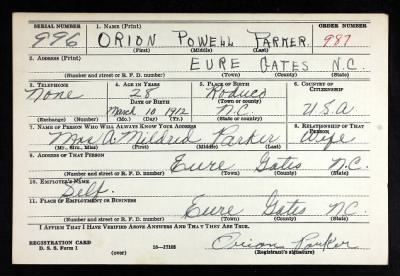 SERIAL NUMBER 1. NAME (Print) ORDER NUMBER
996 ORION POWELL PARKER 987
(First) (Middle) (Last)
2. ADDRESS (Print)
EURE GATES N.C.
(Number and street or R. F. D. number) (Town) (County) (State)
3. TELEPHONE 4. AGE IN YEARS 5. PLACE OF BIRTH 6. COUNTRY OF CITIZENSHIP
None 28 Roduco
DATE OF BIRTH
March 10 1912 N.C. U.S.A
(Exchange) (Number) (Mo.) (Day) (Yr.) (State or country)
7. NAME OF PERSON WHO WILL ALWAYS KNOW YOUR ADDRESS 8. RELATIONSHIP OF THAT PERSON
Mrs A Mildred Parker Wife
(Mr., Mrs., Miss) (First) (Middle) (Last)
9. ADDRESS OF THAT PERSON
Eure Gates N.C.
(Number and street or R. F. D. number) (Town) (County) (State)
10. EMPLOYER'S NAME
Self.
11. PLACE OF EMPLOYMENT OR BUSINESS
Eure Gates N.C.
(Number and street or R. F. D. number) (Town) (County) (State)
I AFFIRM THAT I HAVE VERIFIED ABOVE ANSWERS AND THAT THEY ARE TRUE.
REGISTRATION CARD
D. S. S. Form 1 (over) 16—17105 Orion Parker
(Registrant's signature)